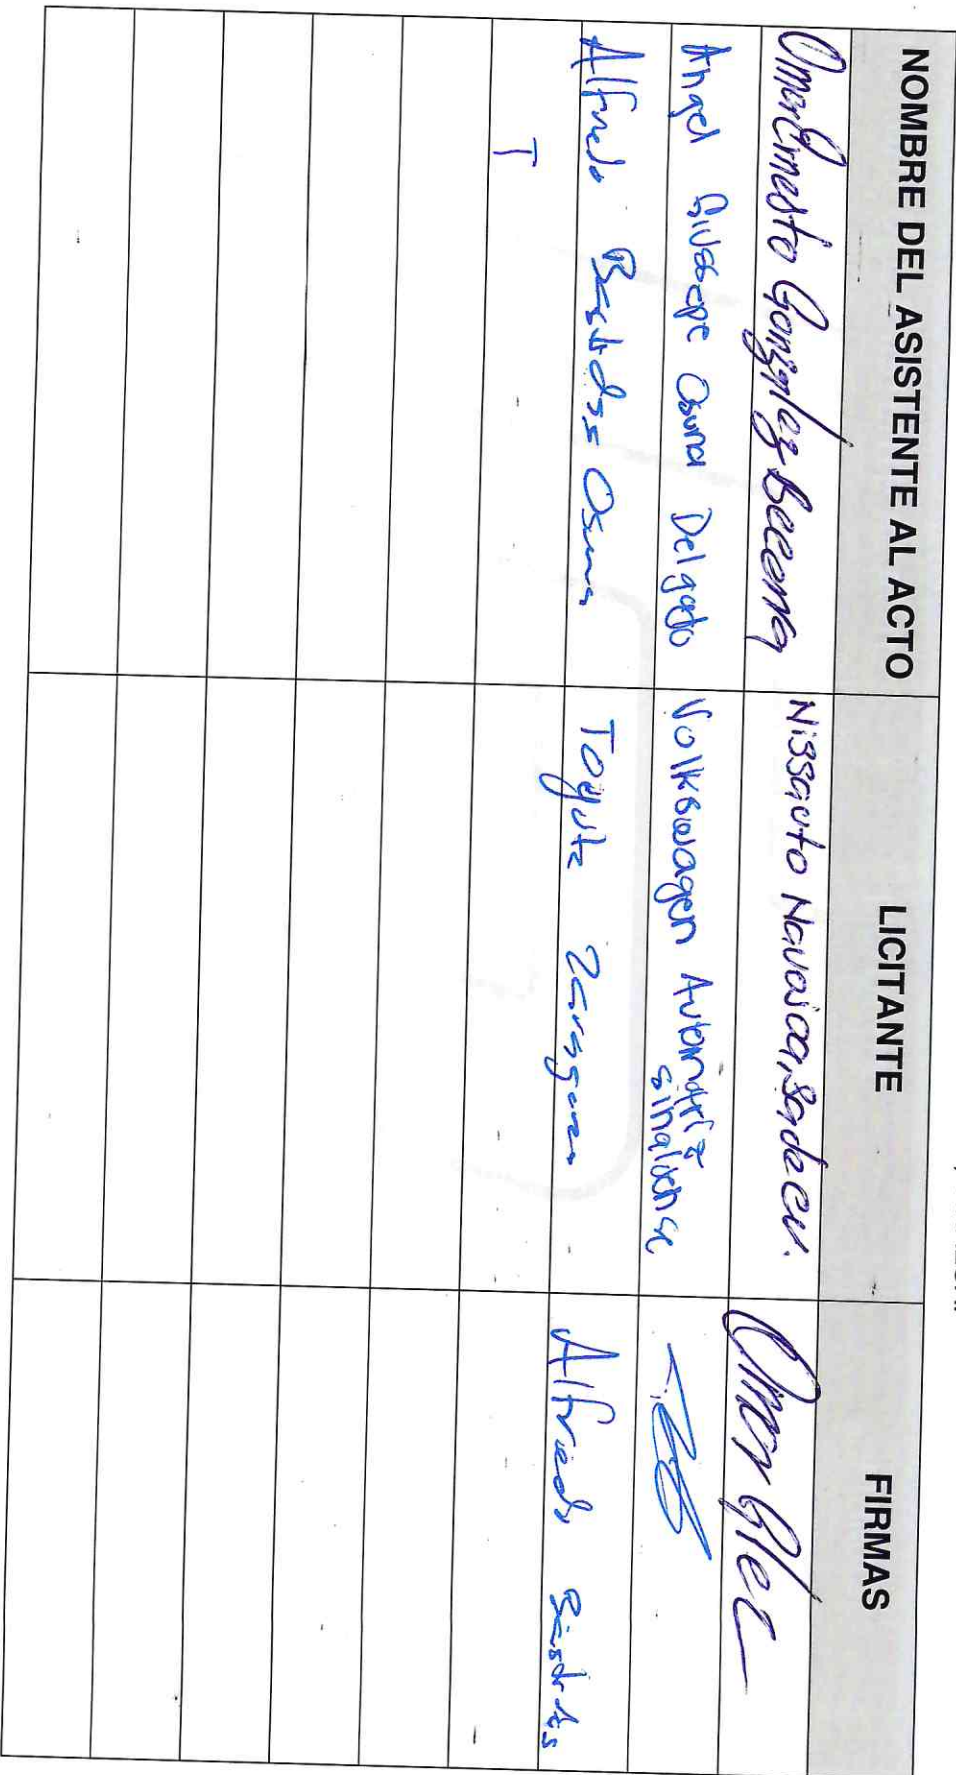 NOMBRE DEL ASISTENTE AL ACTO LICITANTE FIRMAS
Omar Ernesto González Becerra Nissauto Navojoa, Sa de cv. Omar Glez
Angel Giussepe Osuna Delgado Volkswagen Automotriz
sinaloense
Alfredo Bastidas Osuna Toyota Zaragoza Alfredo Bastidas
T